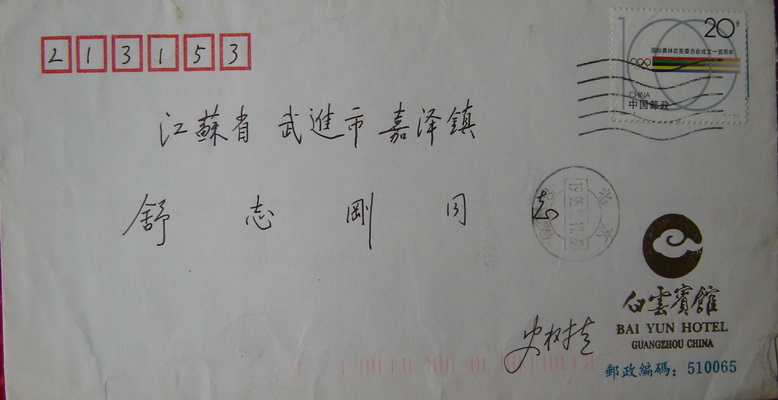 213153
20分
国际奥林匹克委员会成立一百周年
CHINA
中国邮政
江蘇省 武進市 嘉泽鎮
舒志剛同志
白雲賓館
BAI YUN HOTEL
GUANGZHOU CHINA
郵政編碼：510065